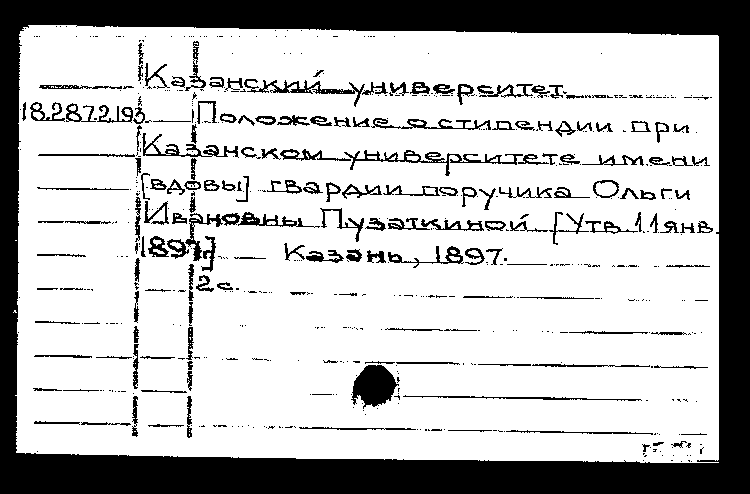 Казанский университет.
18.287.2.193 Положение о стипендии при
Казанском университете имени
[вдовы] гвардии поручика Ольги
Ивановны Пузаткиной [Утв. 11 янв.
1897] Казань, 1897.
2 с.